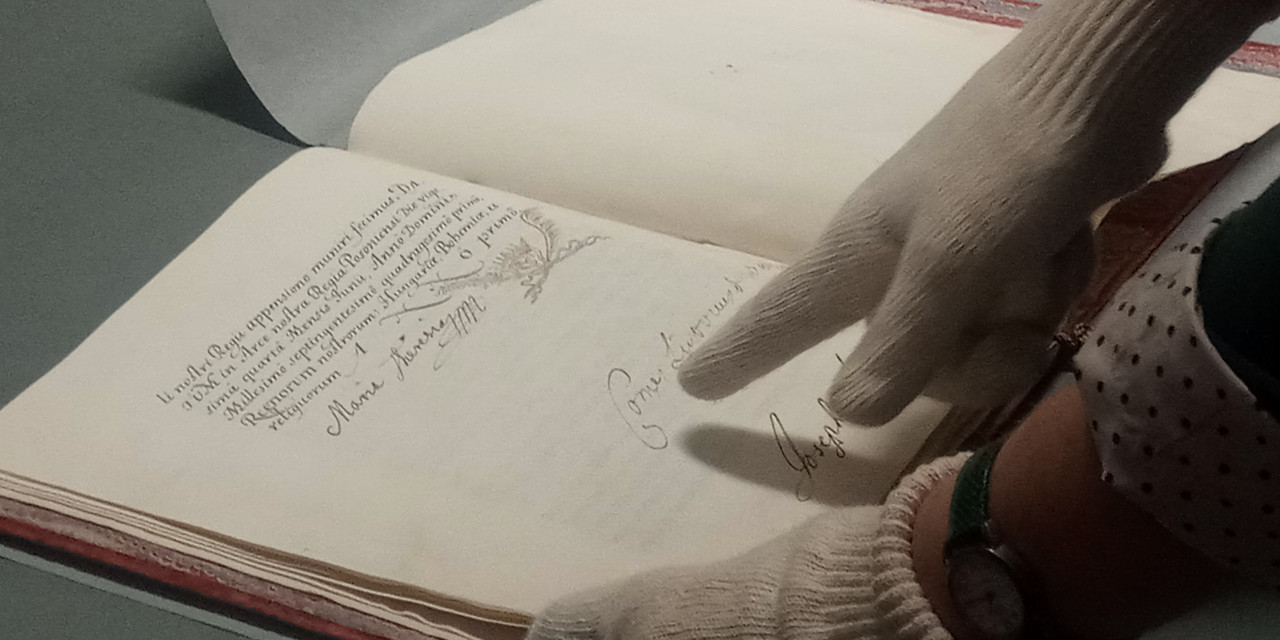 li nostri Regii appensione muniri fecimus. DA
TUM in Arce nostra Regia Posoniensi Die vige
sima quarta Mensis Junii, Anno Domini
Millesimo septingentesimo quadragesimo primo
Regnorum nostrorum: Hungariæ Bohemiæ, u
reliquorum primo
Maria Theresia
Comes
Joseph